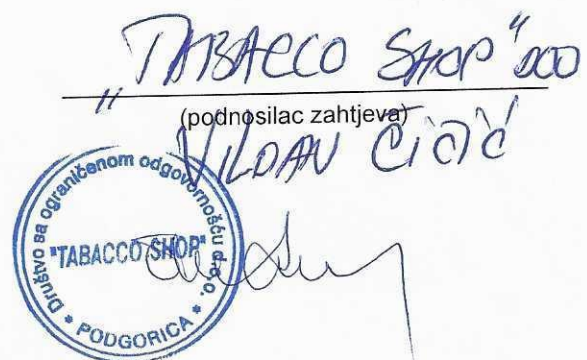 "TABACCO SHOP" DOO
(podnosilac zahtjeva)
VILDAN ČIČIĆ
Društvo sa ograničenom odgovornošću d.o.o.
"TABACCO SHOP"
* PODGORICA *